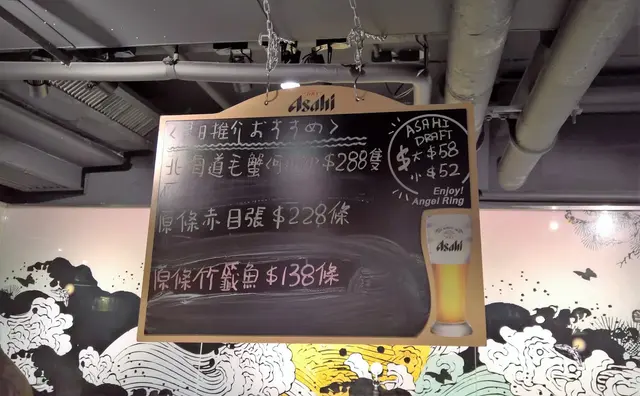 Asahi
<是日推介おすすめ>
北海道毛蟹 $288隻
原條赤目張 $228條
原條竹籤魚 $138條
ASAHI
DRAFT
$ 大 $58
小 $52
Enjoy!
Angel Ring
Asahi